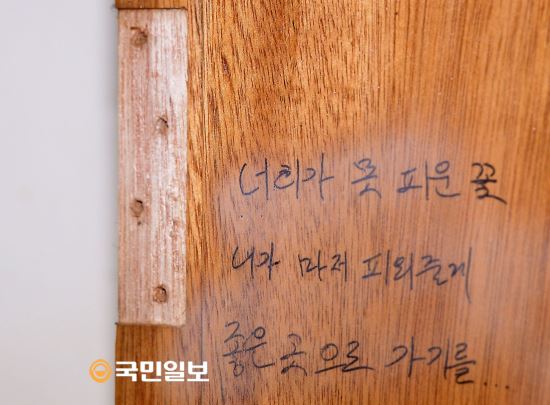 너희가 못 피운 꽃
내가 마저 피워줄게
좋은 곳으로 가기를...
국민일보